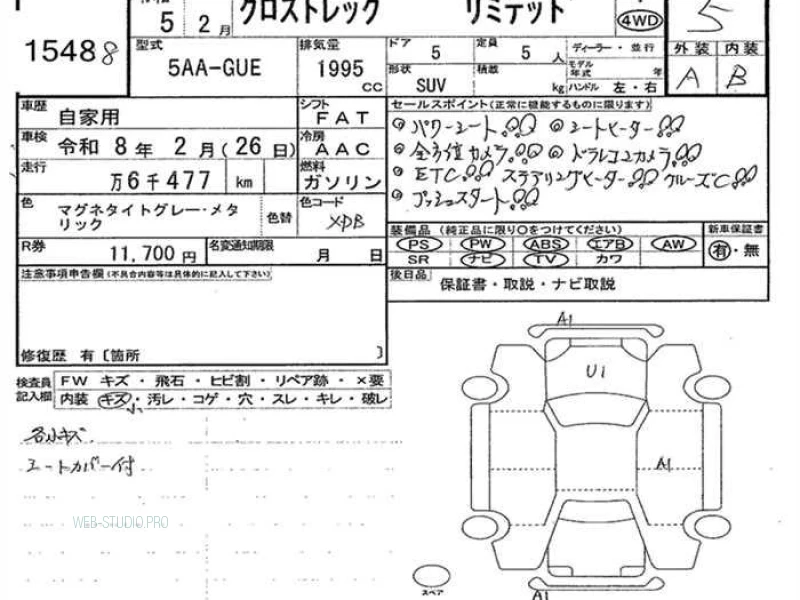 5 2月 クロストレック リミテッド 4WD 5
15488
型式 5AA-GUE 排気量 1995 CC
ドア 5 定員 5 人 ディーラー・並行
形状 SUV 積載 kg モデル年式 年 ハンドル 左・右
外装 内装
A B
車歴 自家用 シフト FAT
車検 令和 8年 2月(26日) 冷房 AAC
走行 万6千477 km 燃料 ガソリン
色 マグネタイトグレー・メタリック 色替 色コード XDB
R券 11,700円 名変通知期限 月 日
セールスポイント(正常に機能するものに限ります)
パワーシート シートヒーター
全方位カメラ ドラレコ2カメラ
ETC ステアリングヒーター クルーズC
プッシュスタート
装備品 (純正品に限り○をつけてください) 新車保証書
PS PW ABS エアB AW 有・無
SR ナビ TV カワ
後日品 保証書・取説・ナビ取説
注意事項申告欄(不具合内容等は具体的に記入して下さい)
修復歴 有〔箇所 〕
検査員記入欄 FW キズ・飛石・ヒビ割・リペア跡・×要
内装 キズ・汚レ・コゲ・穴・スレ・キレ・破レ
各小キズ
シートカバー付
WEB-STUDIO.PRO
A1
U1
A1
A1
スペア